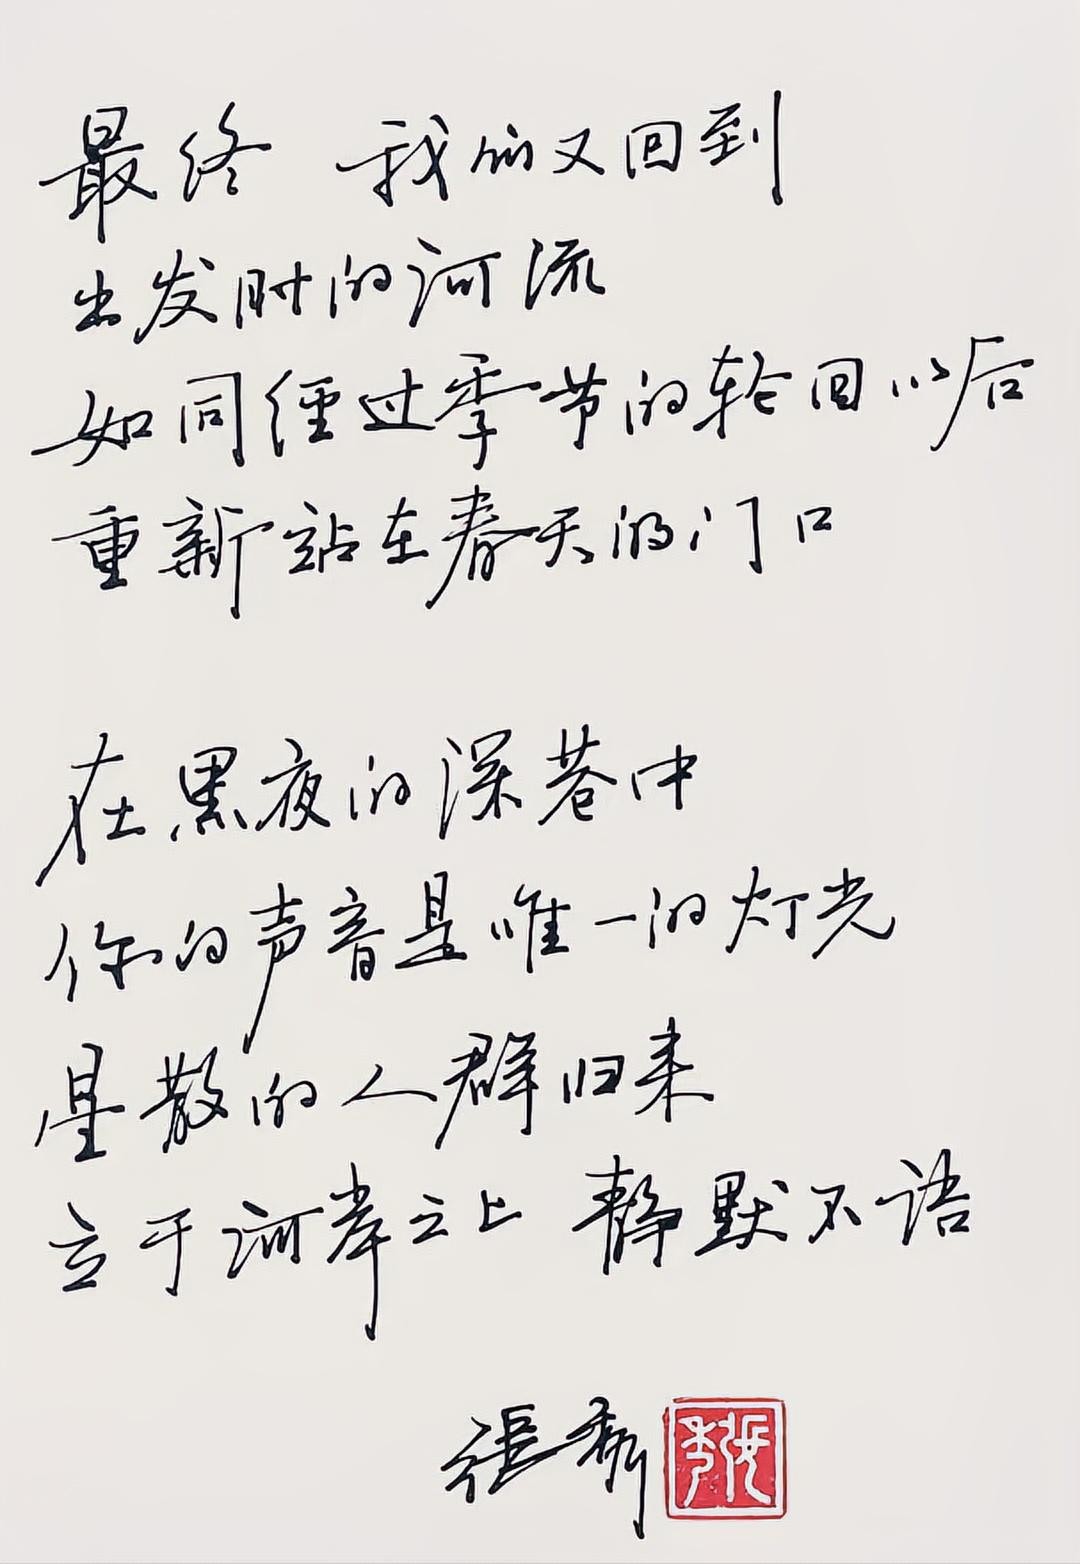 最终 我们又回到
出发时的河流
如同经过季节的轮回以后
重新站在春天的门口
在黑夜的深巷中
你的声音是唯一的灯光
星散的人群归来
立于河岸之上 静默不语
張秀